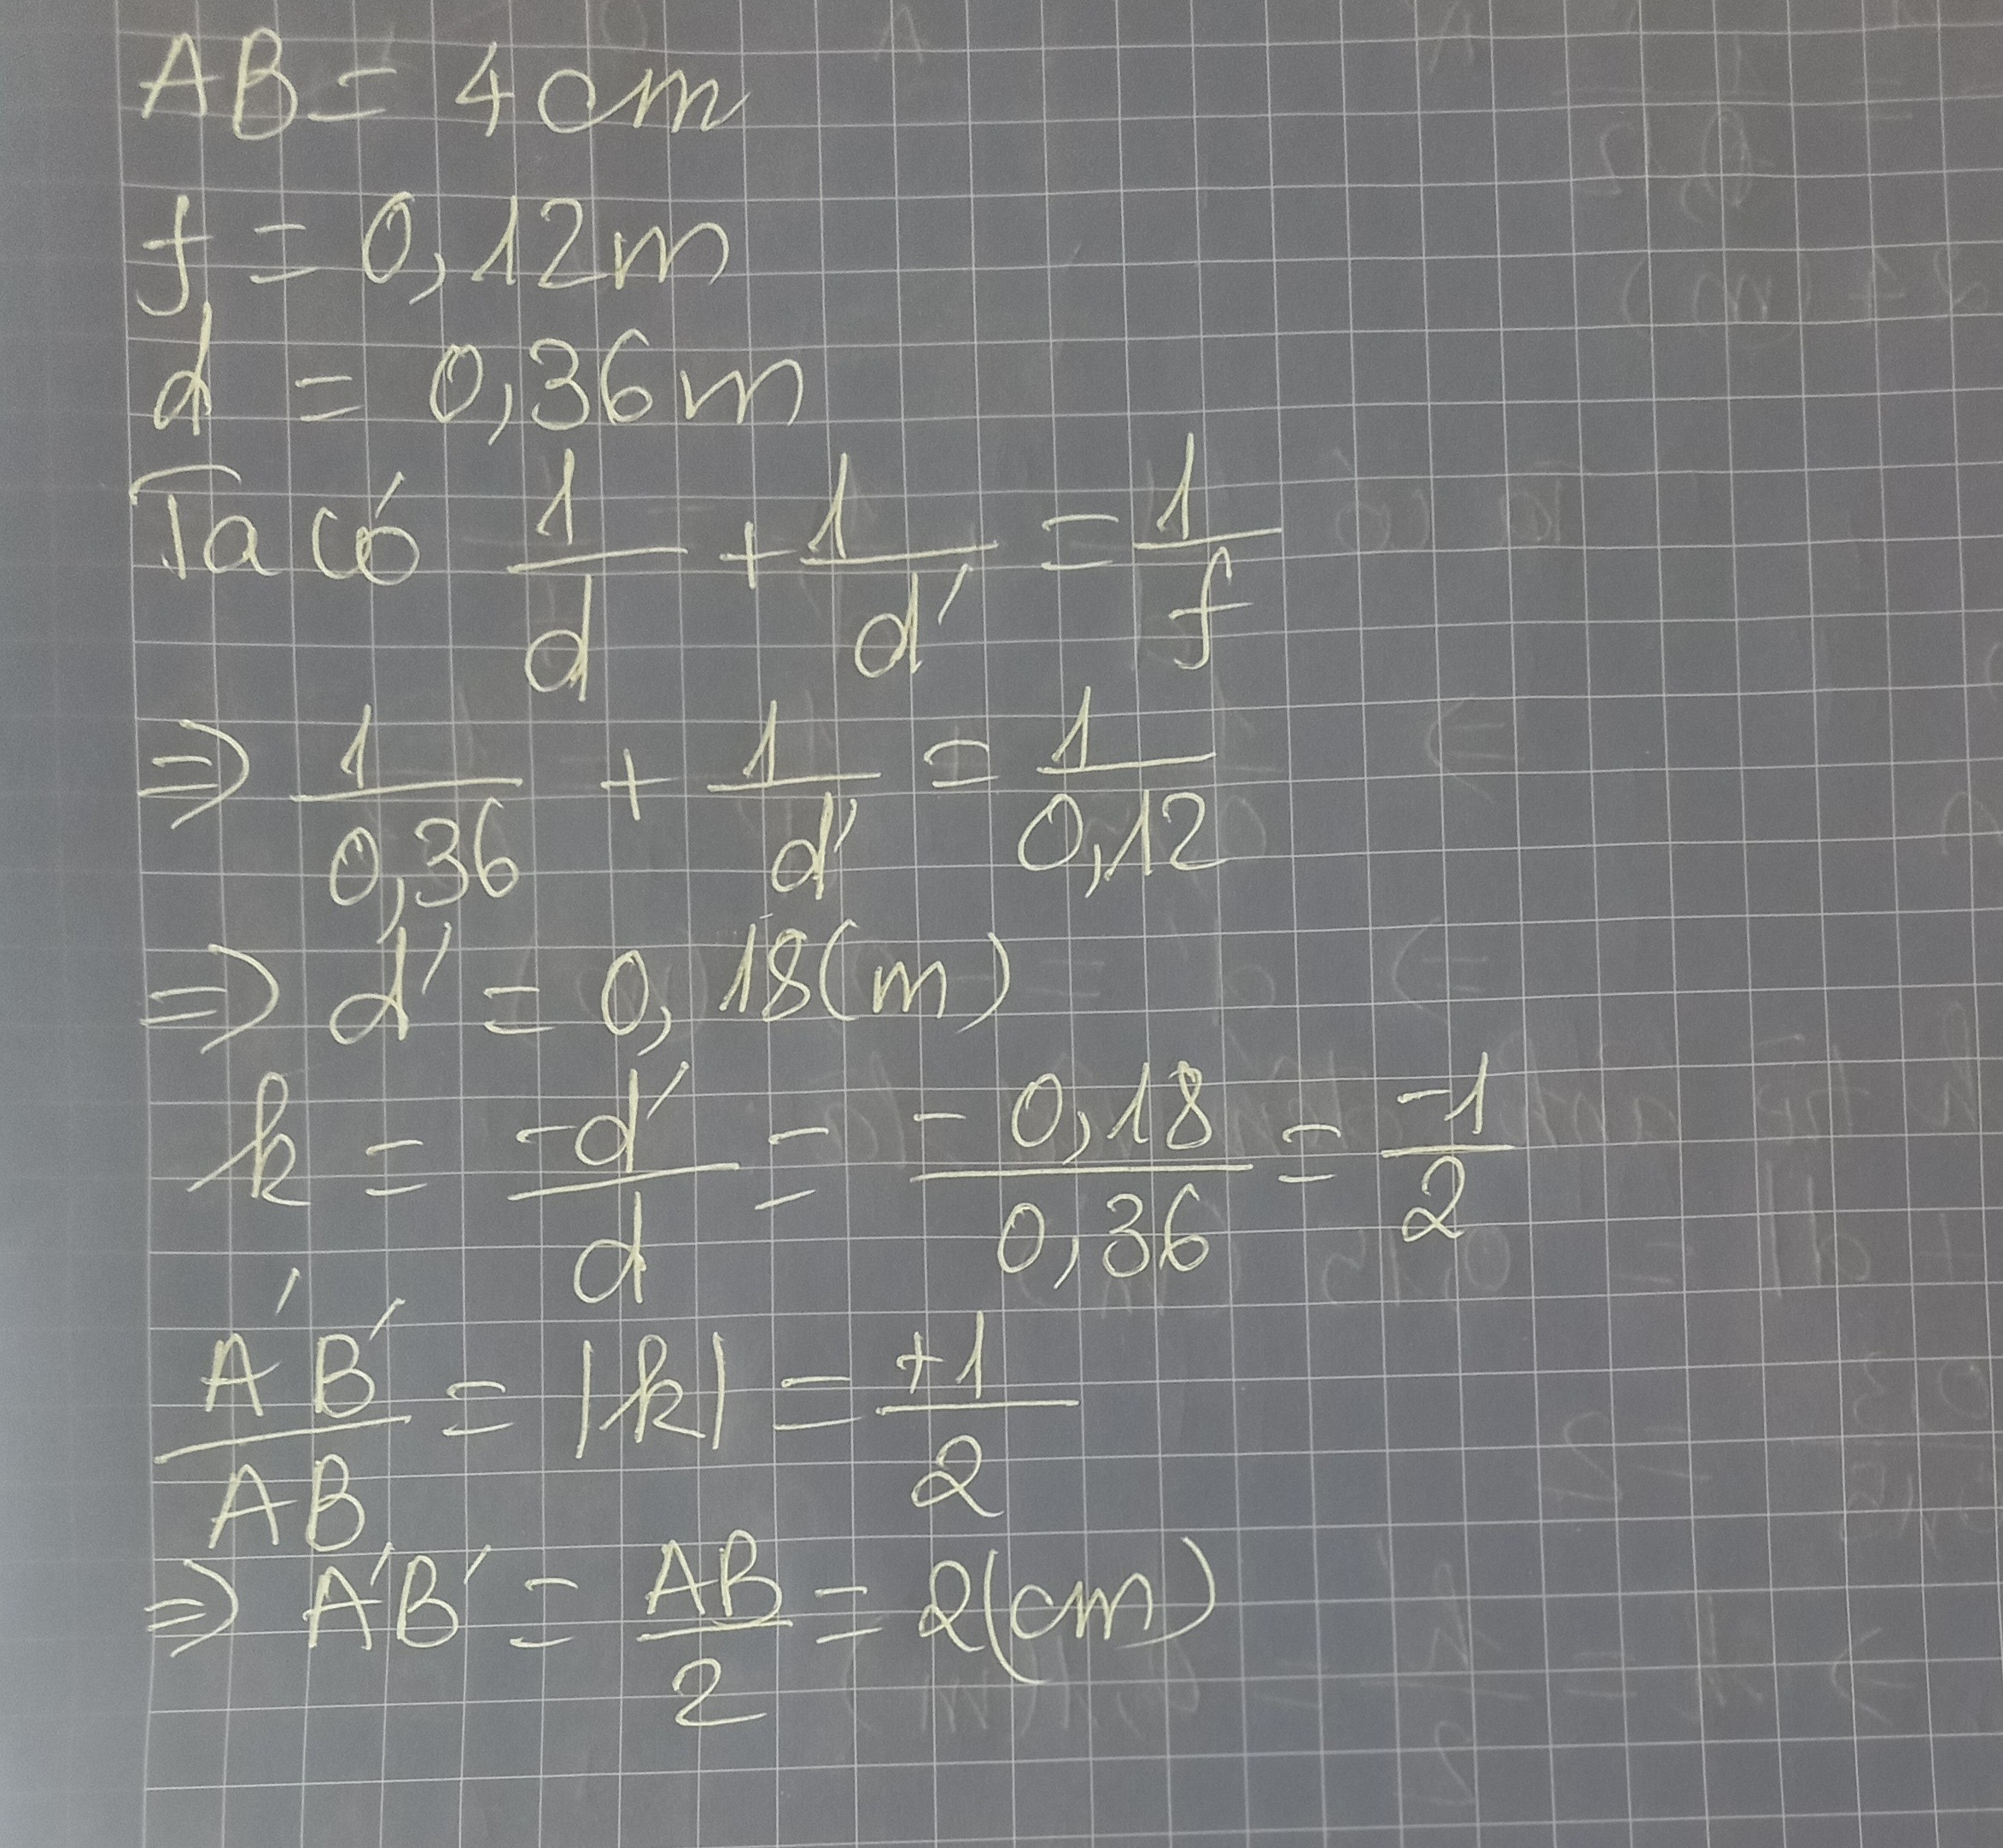 AB = 4 cm
f = 0,12m
d = 0,36m
Ta có 1/d + 1/d' = 1/f
=> 1/0,36 + 1/d' = 1/0,12
=> d' = 0,18(m)
k = -d'/d = -0,18/0,36 = -1/2
A'B'/AB = |k| = +1/2
=> A'B' = AB/2 = 2(cm)